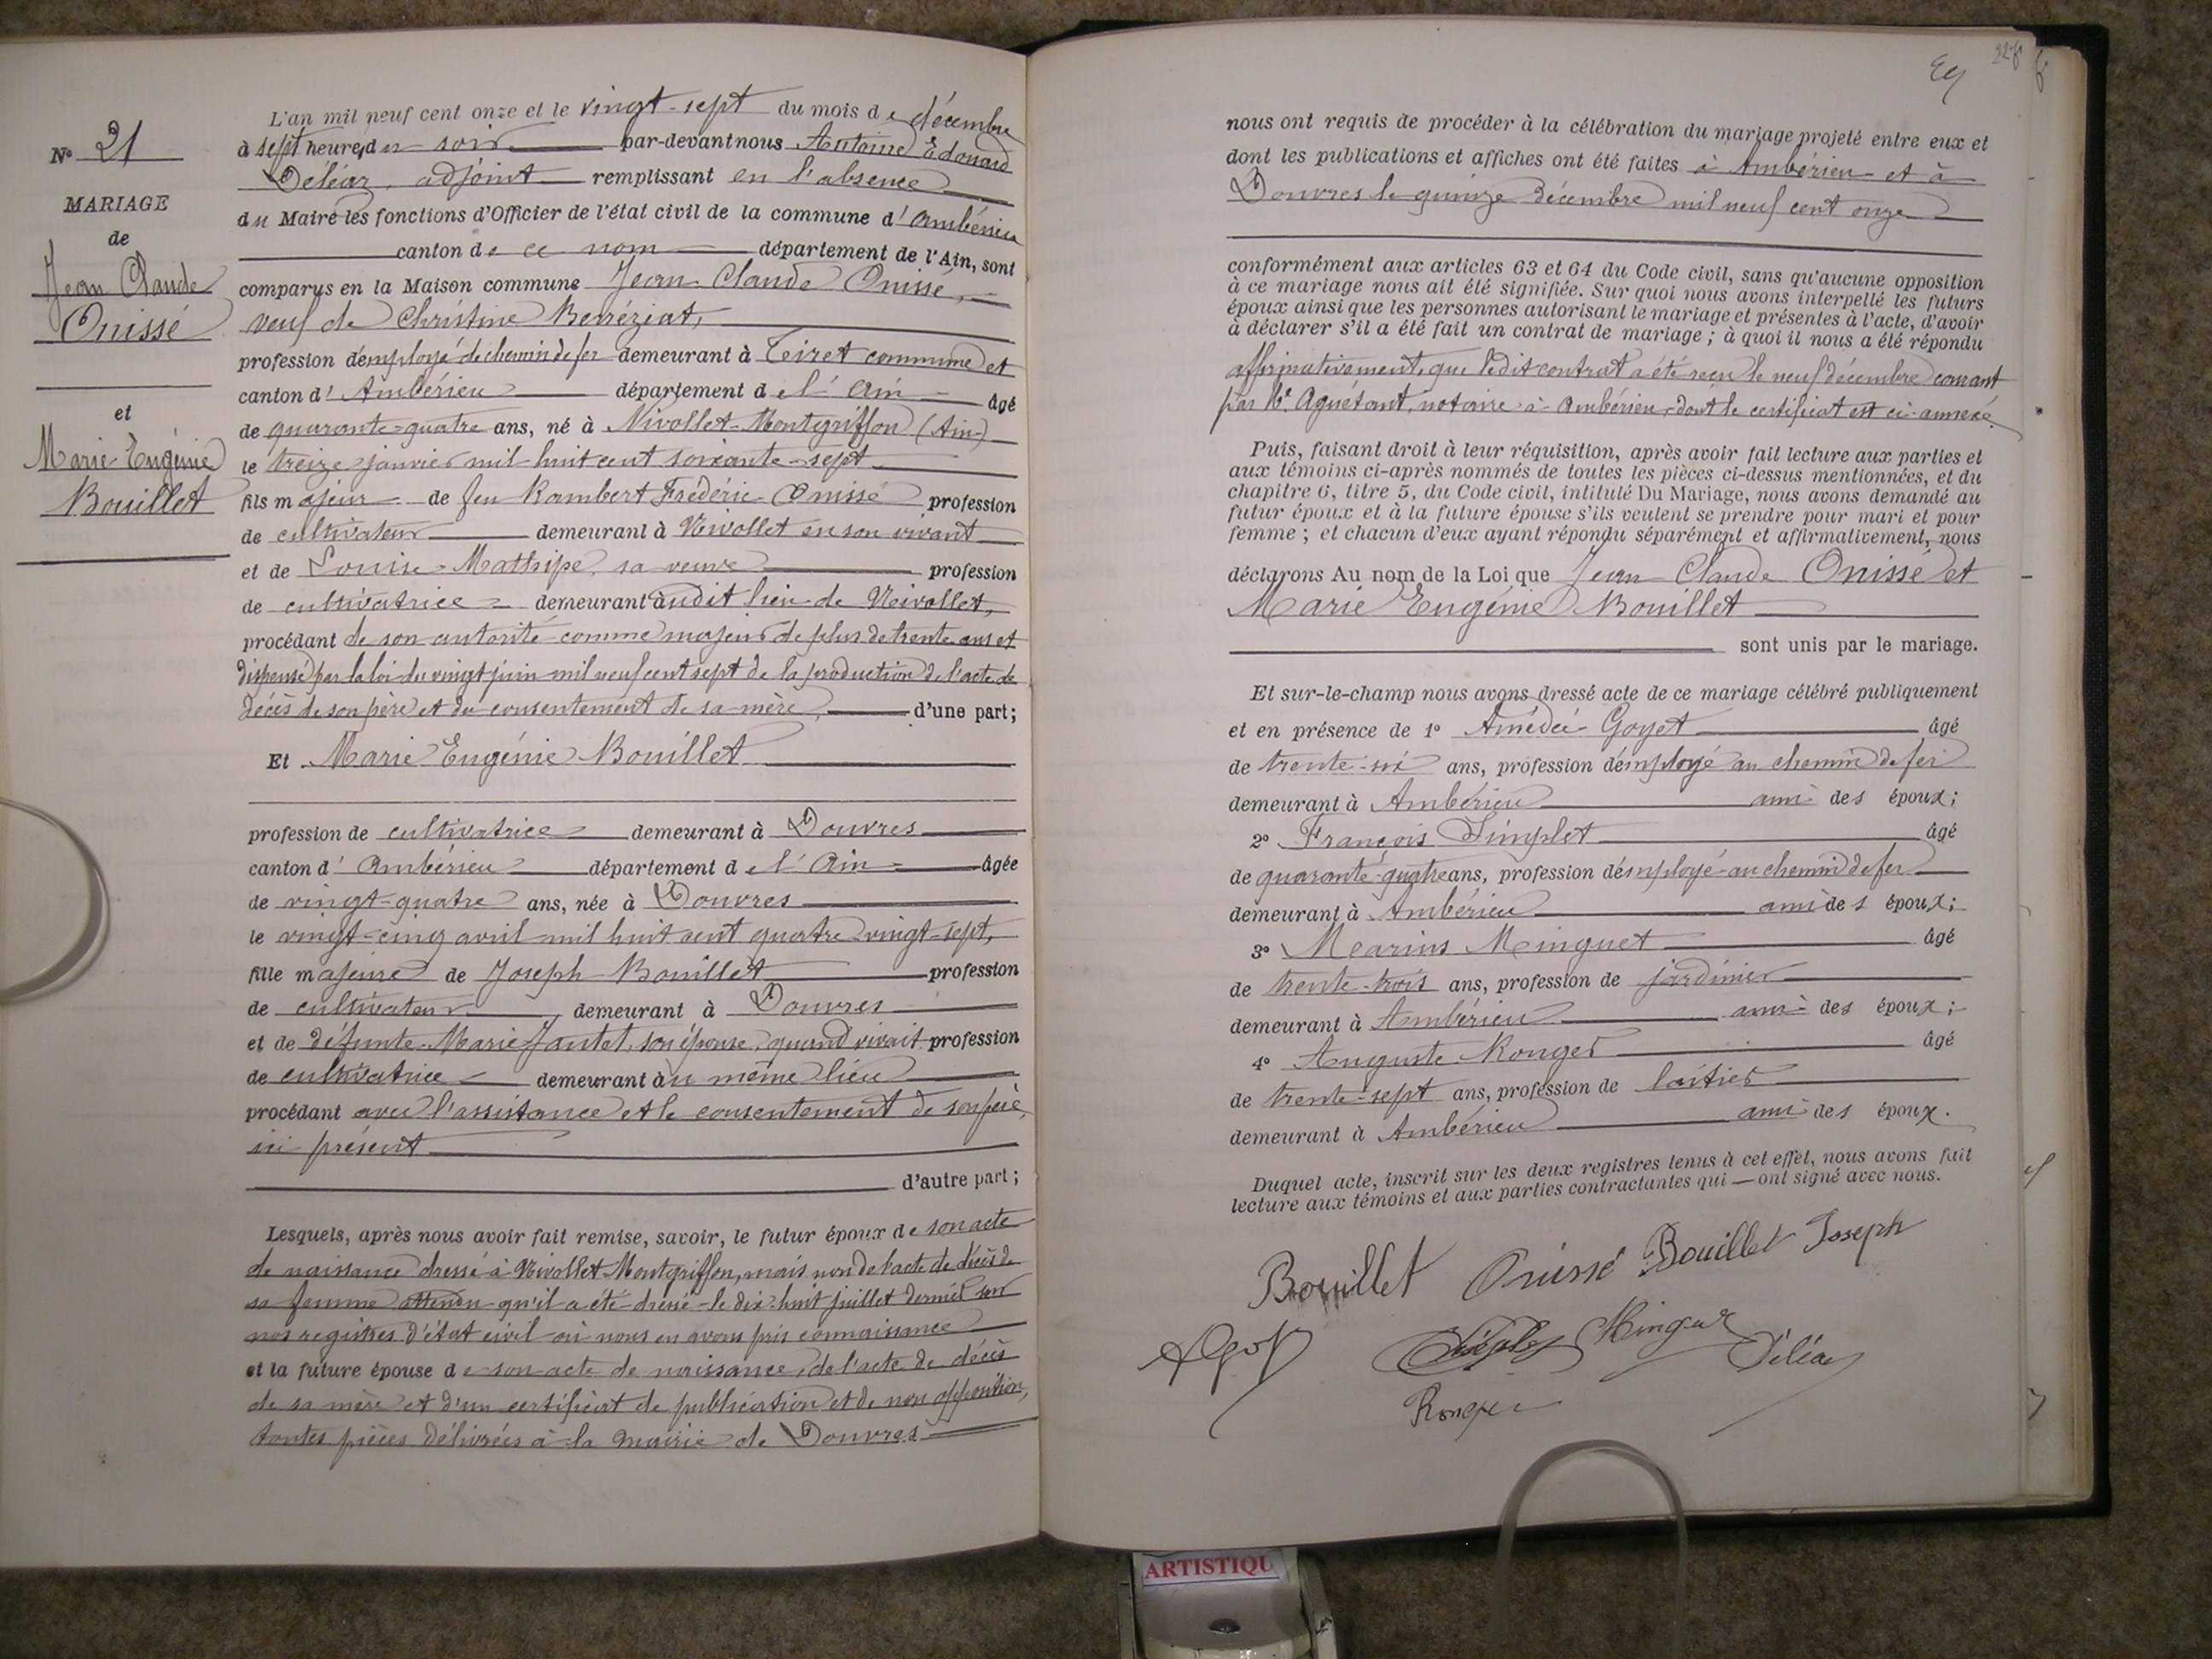 N° 21
MARIAGE
de
Jean Claude
Onissé
et
Marie Eugénie
Bouillet
L'an mil neuf cent onze et le vingt-sept du mois de décembre
à sept heures du soir par-devant nous Antoine Edouard
Déléaz, adjoint remplissant en l'absence
du Maire les fonctions d'Officier de l'état civil de la commune d'Ambérieu
canton de ce nom département de l'Ain, sont
comparus en la Maison commune Jean Claude Onissé,
veuf de Christine Berréziat,
profession d'employé de chemin de fer demeurant à Tiret commune et
canton d'Ambérieu département de l'Ain âgé
de quarante-quatre ans, né à Nivollet-Montgriffon (Ain)
le treize janvier mil huit cent soixante-sept
fils majeur de feu Rambert Frédéric Onissé profession
de cultivateur demeurant à Nivollet en son vivant
et de Louise Mathipe, sa veuve profession
de cultivatrice demeurant audit lieu de Nivollet,
procédant de son autorité comme majeur de plus de trente ans et
dispensé par la loi du vingt juin mil neuf cent sept de la production de l'acte de
décès de son père et du consentement de sa mère, d'une part;
Et Marie Eugénie Bouillet
profession de cultivatrice demeurant à Douvres
canton d'Ambérieu département de l'Ain âgée
de vingt-quatre ans, née à Douvres
le vingt-cinq avril mil huit cent quatre vingt-sept,
fille majeure de Joseph Bouillet profession
de cultivateur demeurant à Douvres
et de défunte Marie Jantet, son épouse, quand vivait profession
de cultivatrice demeurant au même lieu
procédant avec l'assistance et le consentement de son père,
ici présent
d'autre part;
Lesquels, après nous avoir fait remise, savoir, le futur époux de son acte
de naissance dressé à Nivollet-Montgriffon, mais non de l'acte de décès de
sa femme attendu qu'il a été dressé le dix-huit juillet dernier sur
nos registres d'état civil où nous en avons pris connaissance
et la future épouse de son acte de naissance, de l'acte de décès
de sa mère et d'un certificat de publication et de non opposition,
toutes pièces délivrées à la mairie de Douvres
nous ont requis de procéder à la célébration du mariage projeté entre eux et
dont les publications et affiches ont été faites à Ambérieu et à
Douvres le quinze décembre mil neuf cent onze
conformément aux articles 63 et 64 du Code civil, sans qu'aucune opposition
à ce mariage nous ait été signifiée. Sur quoi nous avons interpellé les futurs
époux ainsi que les personnes autorisant le mariage et présentes à l'acte, d'avoir
à déclarer s'il a été fait un contrat de mariage ; à quoi il nous a été répondu
affirmativement, que ledit contrat a été reçu le neuf décembre courant
par Me Aguétant, notaire à Ambérieu, dont le certificat est ci-annexé.
Puis, faisant droit à leur réquisition, après avoir fait lecture aux parties et
aux témoins ci-après nommés de toutes les pièces ci-dessus mentionnées, et du
chapitre 6, titre 5, du Code civil, intitulé Du Mariage, nous avons demandé au
futur époux et à la future épouse s'ils veulent se prendre pour mari et pour
femme ; et chacun d'eux ayant répondu séparément et affirmativement, nous
déclarons Au nom de la Loi que Jean Claude Onissé et
Marie Eugénie Bouillet
sont unis par le mariage.
Et sur-le-champ nous avons dressé acte de ce mariage célébré publiquement
et en présence de 1° Amédée Goyet âgé
de trente-six ans, profession d'employé au chemin de fer
demeurant à Ambérieu ami des époux;
2° François Simplet âgé
de quarante-quatre ans, profession d'employé au chemin de fer
demeurant à Ambérieu ami des époux;
3° Marius Minguet âgé
de trente-trois ans, profession de jardinier
demeurant à Ambérieu ami des époux;
4° Auguste Ronger âgé
de trente-sept ans, profession de laitier
demeurant à Ambérieu ami des époux.
Duquel acte, inscrit sur les deux registres tenus à cet effet, nous avons fait
lecture aux témoins et aux parties contractantes qui — ont signé avec nous.
Bouillet Onissé Bouillet Joseph
Déléaz
Ronger
ARTISTIQU